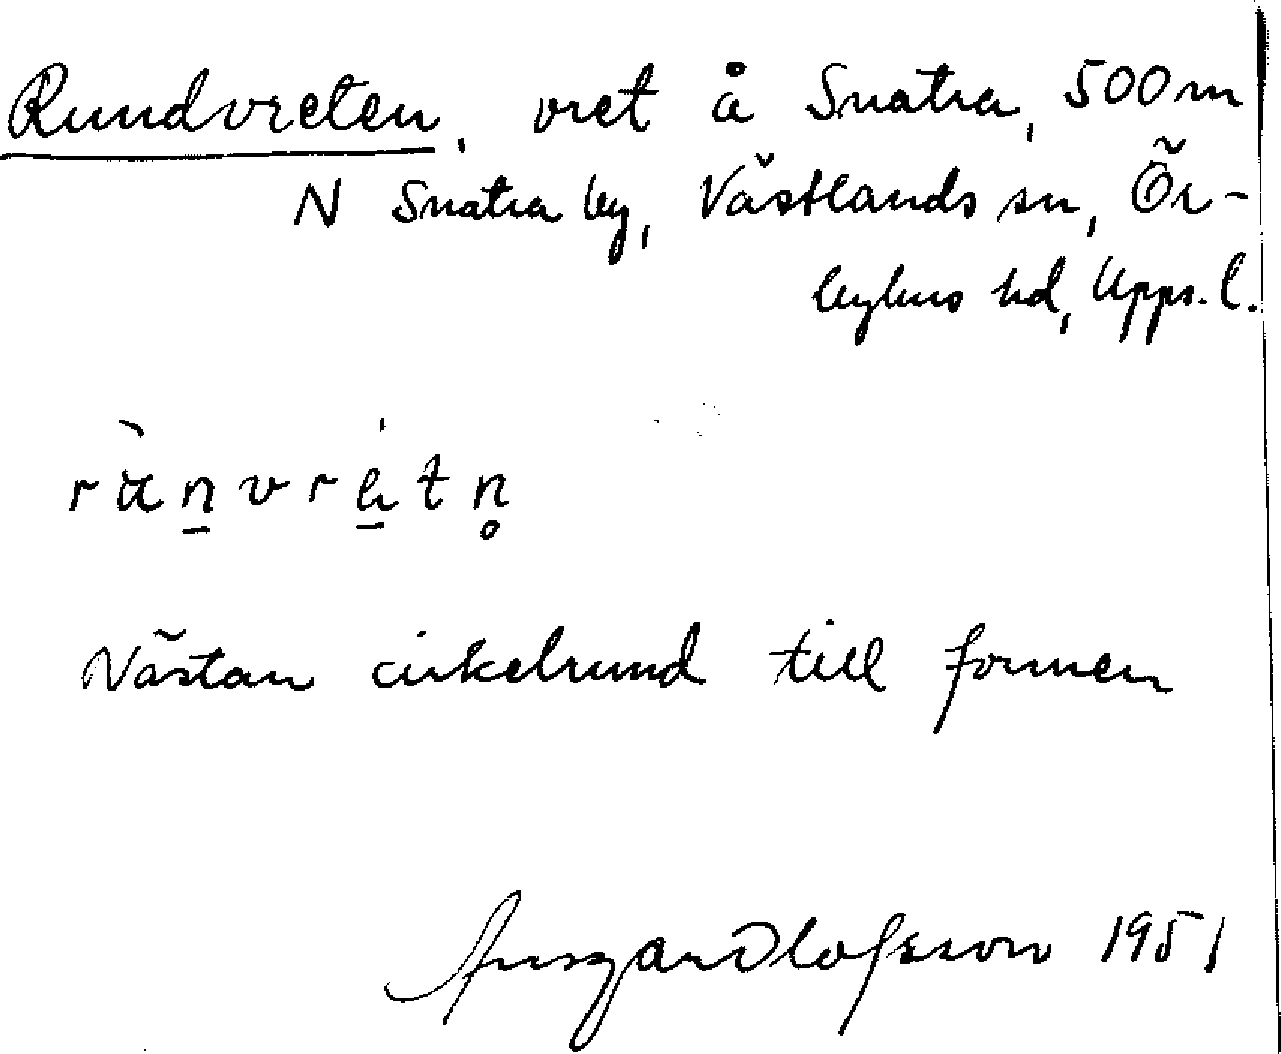 Rundvreten, vret å Snatra, 500 m
N Snatra by, Västlands sn, Ör-
byhus hd, Upps. l.
Nästan cirkelrund till formen
Ansgar Olofsson 1951